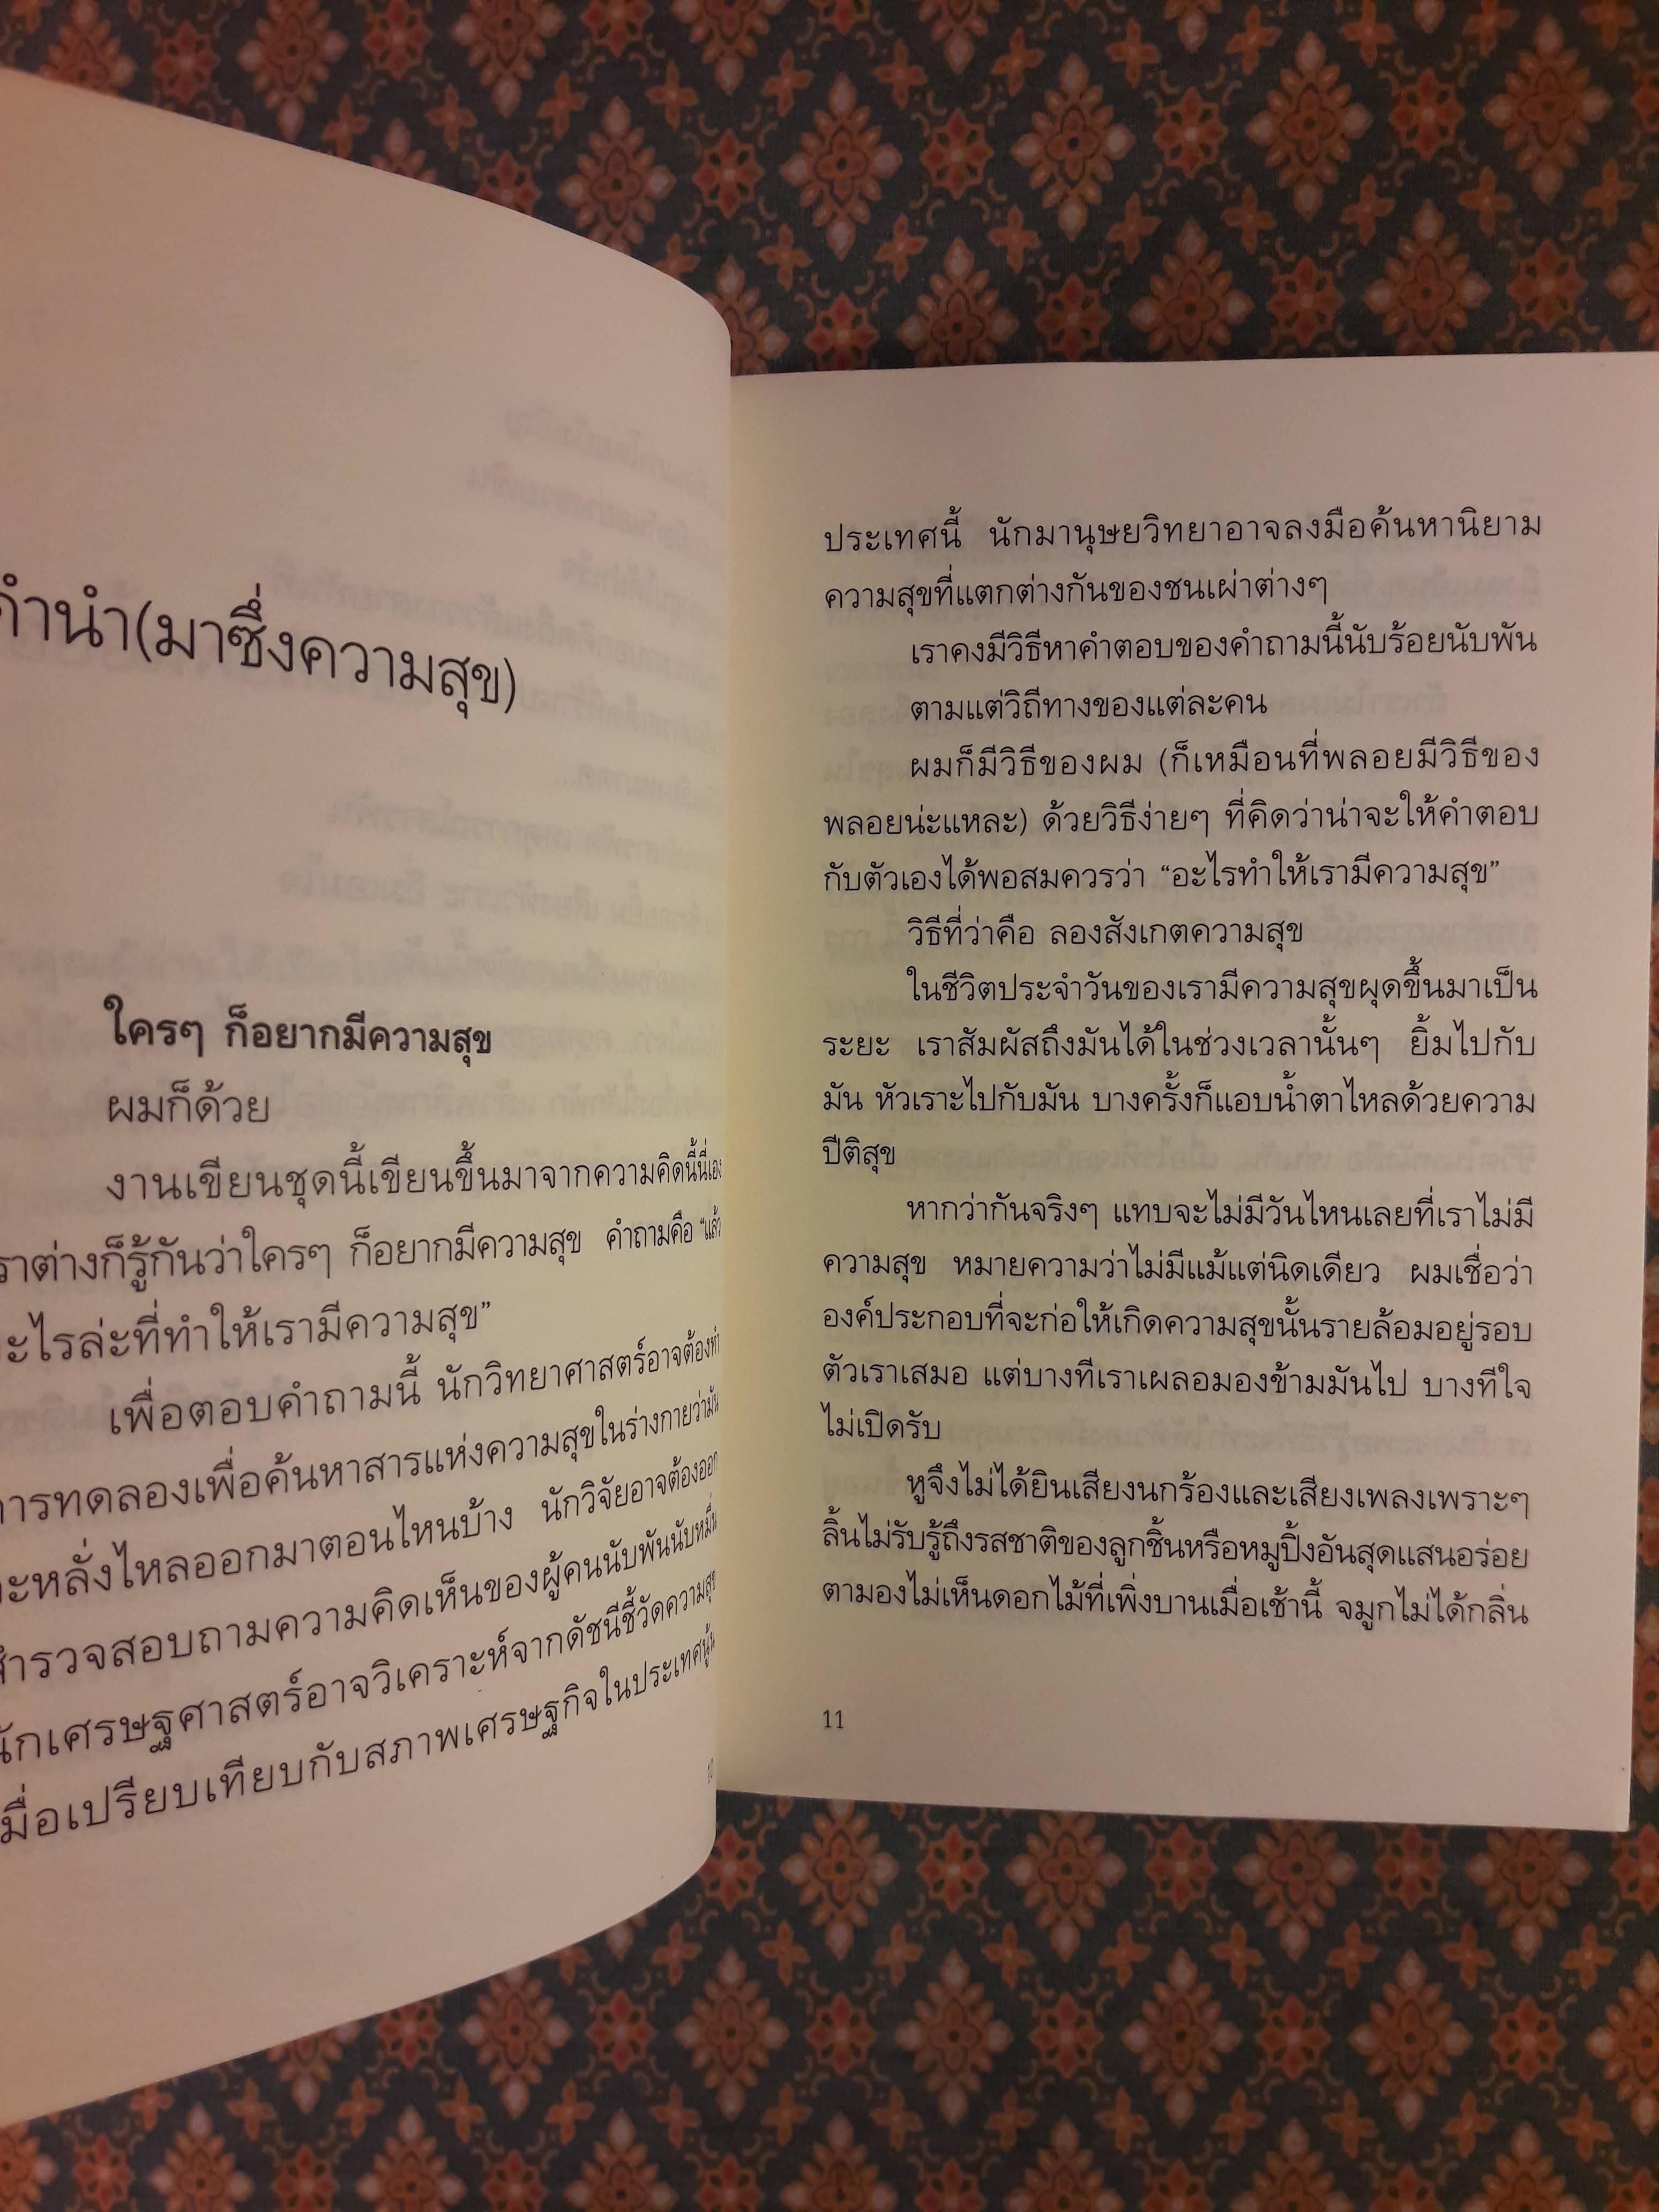 คำนำ(มาซึ่งความสุข)
ใครๆ ก็อยากมีความสุข
ผมก็ด้วย
งานเขียนชุดนี้เขียนขึ้นมาจากความคิดนี้นี่เอง
ราต่างก็รู้กันว่าใครๆ ก็อยากมีความสุข คำถามคือ “แล้ว
ะไรล่ะที่ทำให้เรามีความสุข”
เพื่อตอบคำถามนี้ นักวิทยาศาสตร์อาจต้องทำ
การทดลองเพื่อค้นหาสารแห่งความสุขในร่างกายว่ามัน
จะหลั่งไหลออกมาตอนไหนบ้าง นักวิจัยอาจต้องออก
สำรวจสอบถามความคิดเห็นของผู้คนนับพันนับหมื่น
นักเศรษฐศาสตร์อาจวิเคราะห์จากดัชนีชี้วัดความสุข
มื่อเปรียบเทียบกับสภาพเศรษฐกิจในประเทศนู้น
10
ประเทศนี้ นักมานุษยวิทยาอาจลงมือค้นหานิยาม
ความสุขที่แตกต่างกันของชนเผ่าต่างๆ
เราคงมีวิธีหาคำตอบของคำถามนี้นับร้อยนับพัน
ตามแต่วิถีทางของแต่ละคน
ผมก็มีวิธีของผม (ก็เหมือนที่พลอยมีวิธีของ
พลอยน่ะแหละ) ด้วยวิธีง่ายๆ ที่คิดว่าน่าจะให้คำตอบ
กับตัวเองได้พอสมควรว่า “อะไรทำให้เรามีความสุข”
วิธีที่ว่าคือ ลองสังเกตความสุข
ในชีวิตประจำวันของเรามีความสุขผุดขึ้นมาเป็น
ระยะ เราสัมผัสถึงมันได้ในช่วงเวลานั้นๆ ยิ้มไปกับ
มัน หัวเราะไปกับมัน บางครั้งก็แอบน้ำตาไหลด้วยความ
ปีติสุข
หากว่ากันจริงๆ แทบจะไม่มีวันไหนเลยที่เราไม่มี
ความสุข หมายความว่าไม่มีแม้แต่นิดเดียว ผมเชื่อว่า
องค์ประกอบที่จะก่อให้เกิดความสุขนั้นรายล้อมอยู่รอบ
ตัวเราเสมอ แต่บางทีเราเผลอมองข้ามมันไป บางทีใจ
ไม่เปิดรับ
หูจึงไม่ได้ยินเสียงนกร้องและเสียงเพลงเพราะๆ
ลิ้นไม่รับรู้ถึงรสชาติของลูกชิ้นหรือหมูปิ้งอันสุดแสนอร่อย
ตามองไม่เห็นดอกไม้ที่เพิ่งบานเมื่อเช้านี้ จมูกไม่ได้กลิ่น
11